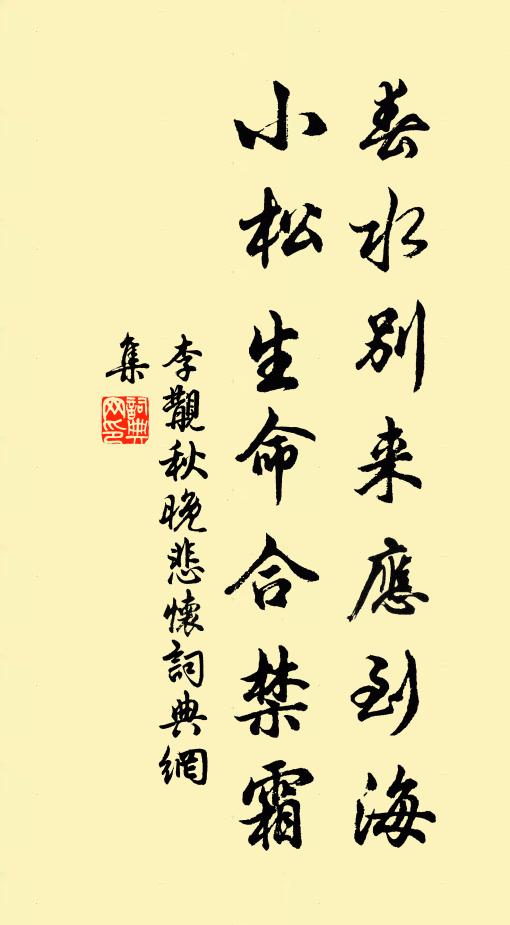 春水別来應到海
小松生命合禁霜
李覯秋晚悲懷詞典網
集
詞典網印